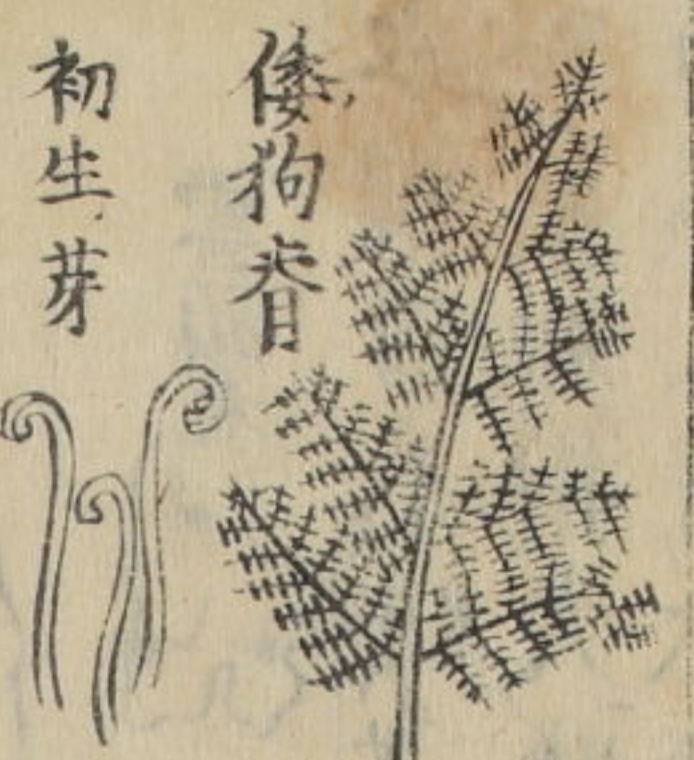 倭狗脊
初生芽